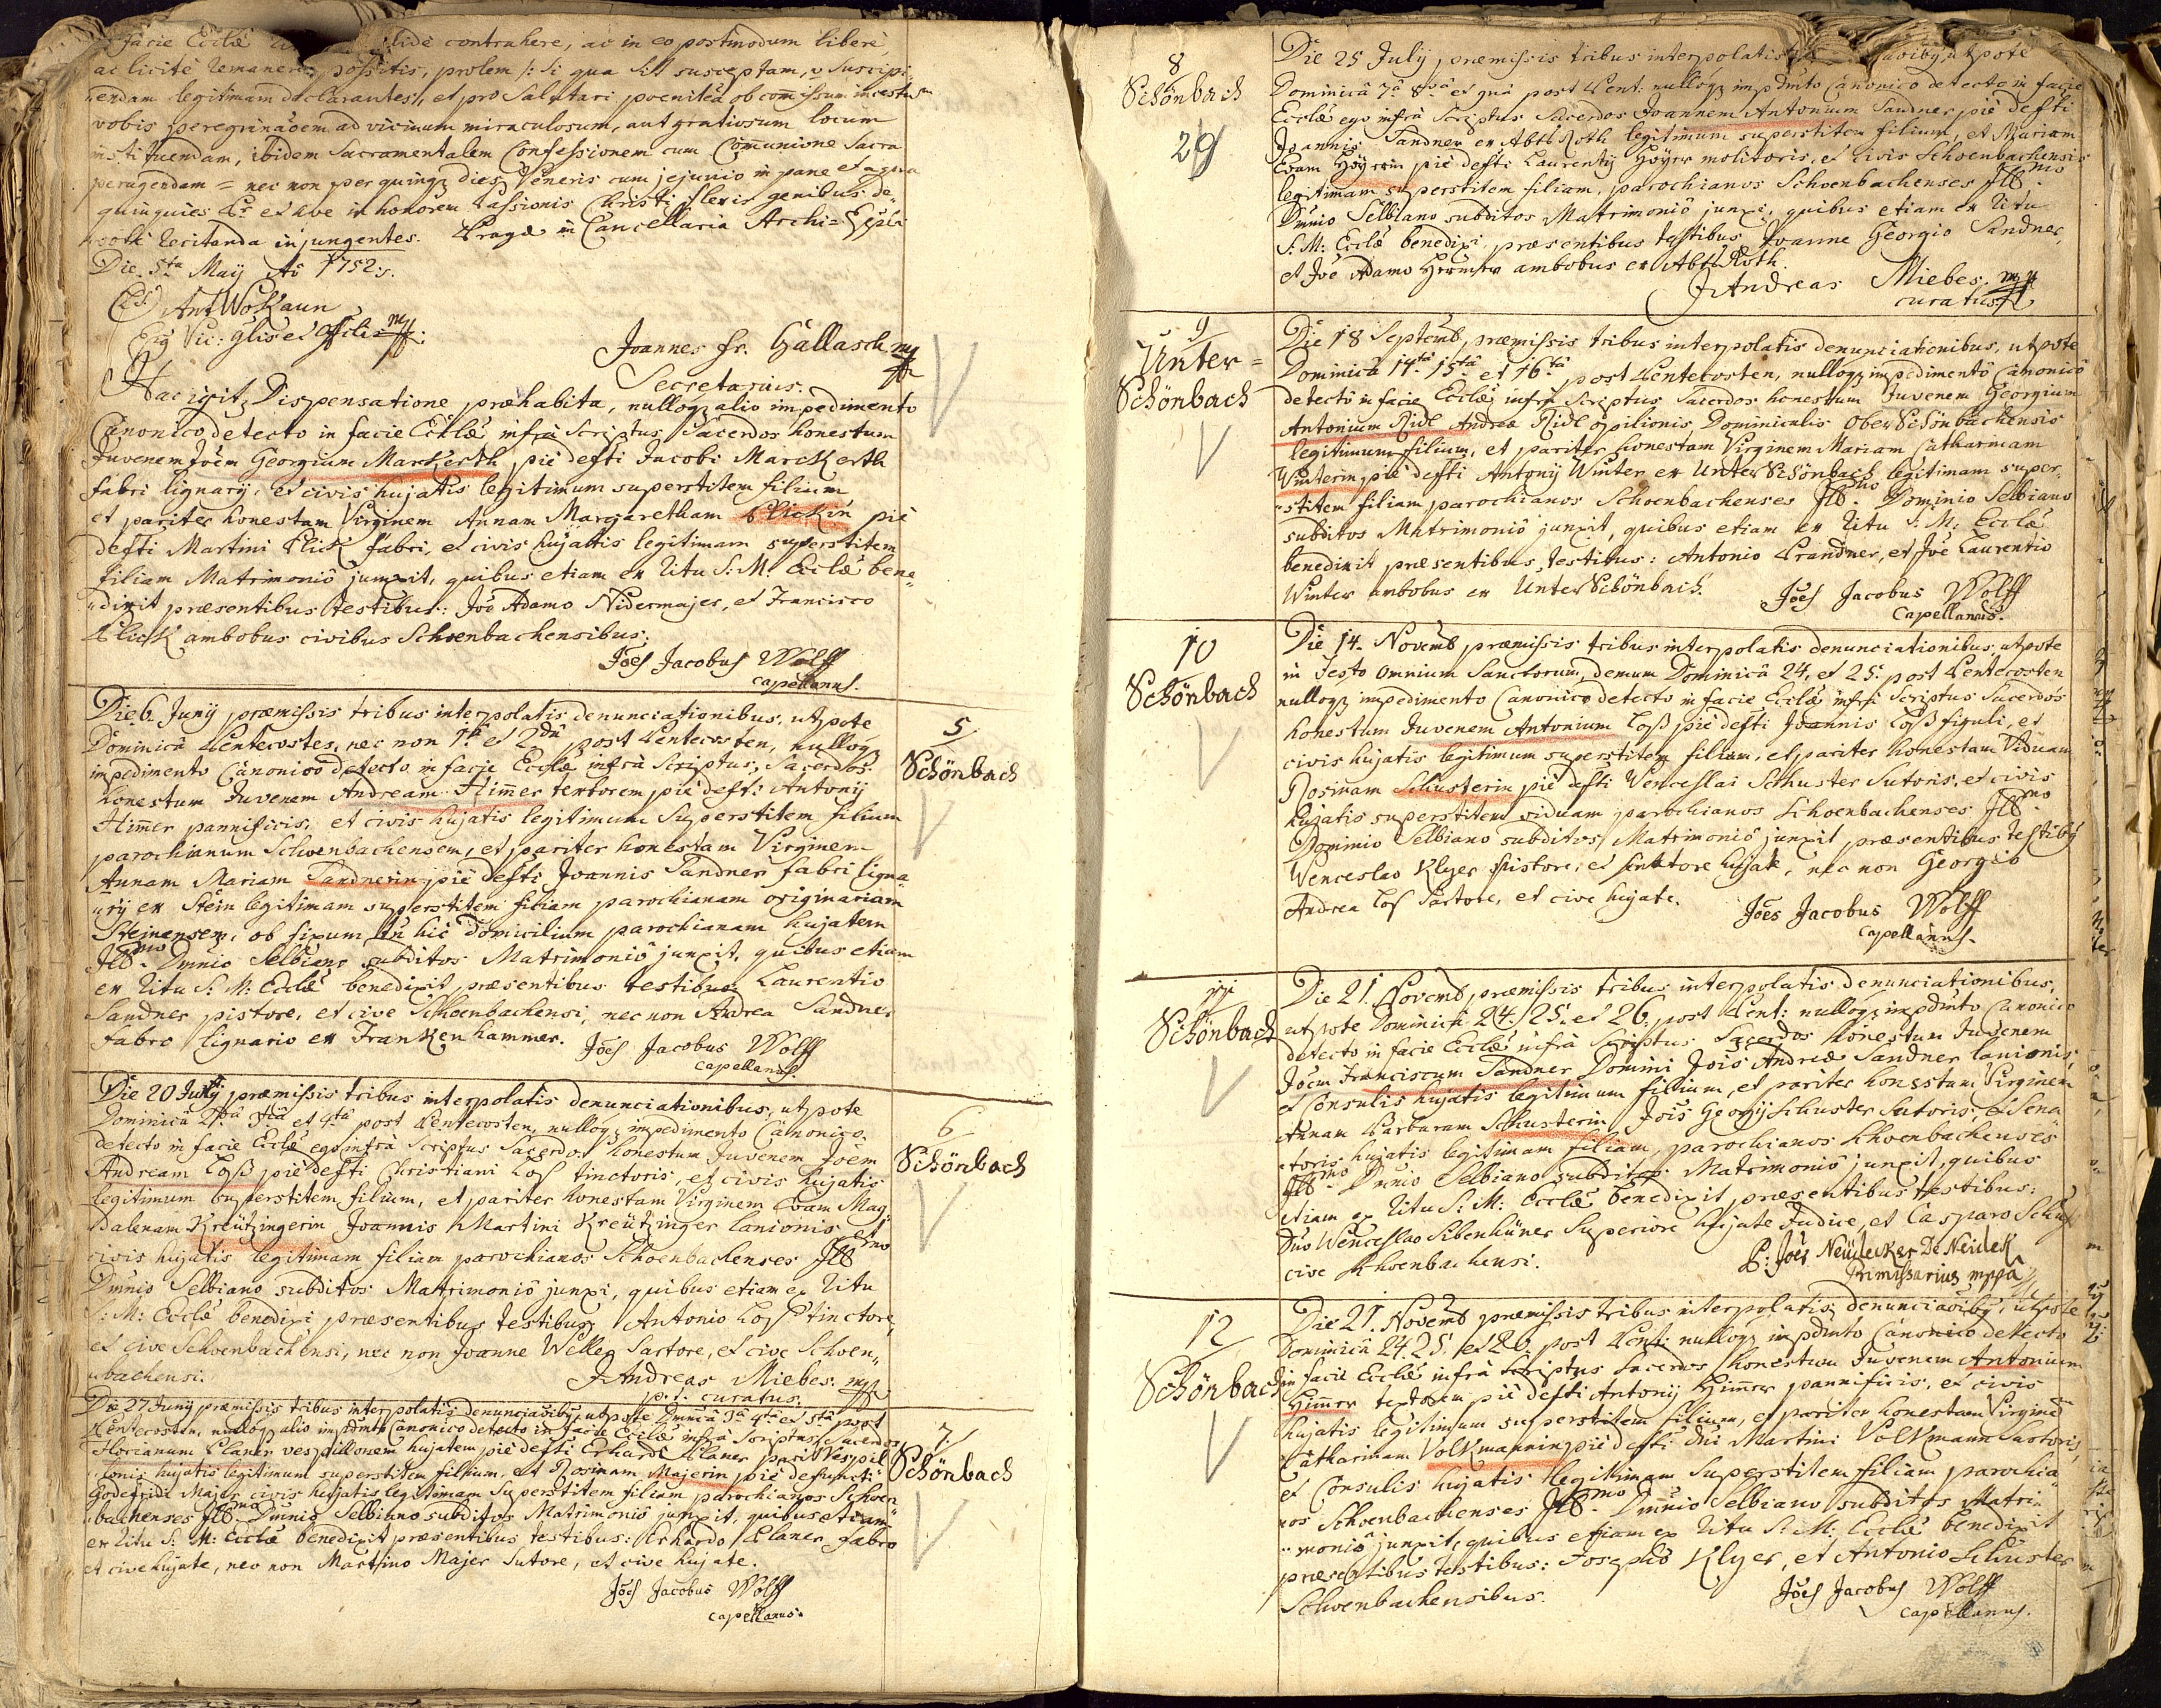 facie Ecclæ lide contrahere, ac in eo postmodum libere,
ac licitè remanere possitis, prolem /: si qua sit susceptam, v suscipi-
endam legitimam declarantes, et pro salutari poenitéa ob comissum incestum
vobis peregrinaõem ad vicinum miraculosum, aut gratiosum locum
instituendam, ibidem Sacramentalem Confessionem cum Comunione Sacra
peragendam = nec non per quinqz dies Veneris cum jejunio in pane et aqua
quinquies Pr et Ave in honorem Passionis Christi flexis genibus de-
recitanda injungentes. Pragæ in Cancellaria Archi=Eppli
Die 5ta Maij Ao 1752:
(LS) Ant Wokaun
Vic: Glis et Offlis mp
Joannes Fr. Gallasch mp
Secretarius.
Hac igit Dispensatione præhabita, nulloqz alio impedimento
Canonico detecto in facie Ecclæ infrà Scriptus Sacerdos honestum
Juvenem Joẽm Georgium Markerth piè defti Jacobi Marckerth
fabri lignarij, et civis hujatis legitimum superstitem filium
et pariter honestam Virginem Annam Margaretham Plickin piè
defti Martini Plick fabri, et civis hujatis legitimam superstitem
filiam Matrimoniô junxit, quibus etiam ex Ritu S: M: Ecclæ bene-
dixit præsentibus testibus: Joe Adamo Nidermajer, et Francisco
Plick ambobus civibus Schoenbachensibus.
Joes Jacobus Wolff
capellanus.
Die 6. Junij præmissis tribus interpolatis denunciationibus, utpote
Dominicâ Pentecostes, nec non 1ma et 2da post Pentecosten, nulloqz
impedimento Canonico detecto in facie Ecclæ infrà Scriptus Sacerdos
honestum Juvenem Andream Him̃er textorem piè defti Antonij
Him̃er pannificis, et civis hujatis legitimum Superstitem filium
parochianum Schoenbachensem, et pariter honestam Virginem
Annam Mariam Sandnerin piè defti Joannis Sandner fabri ligna-
rij ex Stein legitimam superstitem filiam parochianam originariam
Steinensem, ob fixum hic domicilium parochianam hujatem
Illmo Dm̃nio Selbiano subditos Matrimoniô junxit, quibus etiam
ex Ritu S: M: Ecclæ benedixit præsentibus testibus Laurentio
Sandner pistore, et cive Schoenbachensi, nec non Andrea Sandner
fabro lignario ex Frankenhammer.
Joes Jacobus Wolff
Capellanus.
5
Schönbach
Die 20 Junij præmissis tribus interpolatis denunciationibus, utpote
Dominicâ 2dâ 3tiâ et 4tâ post Pentecosten, nulloqz impedimento Canonico
detecto in facie Ecclæ ego infrà Scriptus Sacerdos honestum Juvenem Joem
Andream Loß piè defti Christiani Los tinctoris, et civis hujatis
legitimum superstitem filium, et pariter honestam Virginem Evam Mag-
dalenam Kreützingerin Joannis Martini Kreützinger lanionis et
civis hujatis legitimam filiam parochianos Schoenbachenses Illmo
Dm̃nio Selbiano subditos Matrimoniô junxi, quibus etiam ex Ritu
S: M: Ecclæ benedixi præsentibus testibus Antonio Los tinctore,
et cive Schoenbachensi, nec non Joanne Weller Sartore, et cive Schoen-
bachensi.
J Andreas Miebes. mp
p. t. curatus.
6
Schönbach
Die 27 Junij præmissis tribus interpolatis denunciaõibus, utpote Dm̃nicâ 3tiâ 4tâ et 5tâ post
Pentecosten, nulloqz alio impdimto Canonico detecto in facie Ecclæ infrà Scriptus Sacerdos
Florianum Planer vespillonem hujatem piè defti Erhardi Planer pariter Vespil-
lonis hujatis legitimum superstitem filium, et Rosinam Majerin piè defuncti
Godefridi Majer civis hujatis legitimam superstitem filiam parochianos Schoen-
bachenses Illmo Dm̃nio Selbiano subditos Matrimoniô junxit, quibus etiam
ex Ritu S: M: Ecclæ benedixit præsentibus testibus: Erhardo Planer fabro
et cive hujate, nec non Martino Majer Sutore, et cive hujate.
Joes Jacobus Wolff
capellanus.
7
Schönbach
8
Schönbach
29
Die 25 July præmissis tribus interpolatis utpote
Dominicâ 7â 8vâ et 9nâ post Pent: nulloqz impdmto Canonico detecto in facie
Ecclæ ego infrà Scriptus Sacerdos Joannem Antonium Sandner piè defti
Joannis Sandner ex Abts Roth legitimum superstitem filium, et Mariam
Evam Höyrin piè defti Laurentij Höyer molitoris, et civis Schoenbachensis
legitimam superstitem filiam, parochianos Schoenbachenses Illmo
Dm̃nio Selbiano subditos Matrimoniô junxi, quibus etiam ex Ritu
S: M: Ecclæ benedixi, præsentibus testibus Joanne Georgio Sandner,
et Joe Adamo ambobus ex Abts Roth.
J Andreas Miebes. mp
curatus
9
Unter=
Schönbach
Die 18 Septemb, præmissis tribus interpolatis denunciationibus, utpote
Dominicâ 14ta 15ta et 16ta post Pentecosten, nulloqz impedimentô Canonicô
detectô in facie Ecclæ infrà Scriptus Sacerdos honestum Juvenem Georgium
Antonium Ridl Andreæ Ridl opilionis Dominicalis OberSchönbachensis
legitimum filium, et pariter honestam Virginem Mariam Catharinam
Winterin piè defti Antonij Winter ex UnterSchönbach legitimam super-
stitem filiam parochianos Schoenbachenses Illmo Dominio Selbiano
subditos Matrimoniô junxit, quibus etiam ex Ritu S: M: Ecclæ
benedixit præsentibus testibus: Antonio Prandner, et Joe Laurentio
Winter ambobus ex UnterSchönbach.
Joes Jacobus Wolff
Capellanus.
10
Schönbach
Die 14. Novemb præmissis tribus interpolatis denunciationibus, utpote
in Festo Omnium Sanctorum, demum Dominicâ 24. et 25. post Pentecosten
nulloqz impedimento Canonico detecto in facie Ecclæ infrà Scriptus Sacerdos
honestum Juvenem Antonium Loß piè defti Joannis Loß figuli, et
civis hujatis legitimum superstitem filium, et pariter honestam Viduam
Rosinam Schusterin piè defti Venceslai Schuster Sutoris, et civis
hujatis superstitem viduam parochianos Schoenbachenses Illmo
Dominio Selbiano subditos Matrimoniô junxit præsentibus testibus
Wenceslao Klyer Pistore, et senatore hujate, nec non Georgio
Andrea Los Sartore, et cive hujate.
Joes Jacobus Wolff
capellanus.
11
Schönbach
Die 21. Novemb præmissis tribus interpolatis denunciationibus,
utpote Dominicâ 24. 25. et 26. post Pent: nulloqz impdmto Canonico
detecto in facie Ecclæ infrà Scriptus Sacerdos honestum Juvenem
Joem Franciscum Sandner Domini Jois Andreæ Sandner lanionis,
et Consulis hujatis legitimum filium, et pariter honestam Virginem
Annam Barbaram Schusterin Jois Georgij Schuster Sutoris, et Sena-
toris hujatis legitimam filiam, parochianos Schoenbachenses
Illmo Dm̃nio Selbiano subditos Matrimoniô junxit, quibus
etiam ex Ritu S: M: Ecclæ benedixit præsentibus testibus:
Dno Wenceslao Sibenhüner Superiore hujate Judice, et Casparo Schuster
cive Schoenbachensi.
P: Joes Neüdecker De Neüdek
Primissarius mppa
12
Schönbach
Die 21. Novemb præmissis tribus interpolatis denunciaõibus, utpote
Dominicâ 24. 25. et 26. post Pent: nulloqz impdmto Canonico detecto
in facie Ecclæ infrà scriptus sacerdos honestum Juvenem Antonium
Him̃er textorem piè defti Antonij Him̃er pannificis, et civis
hujatis legitimum superstitem filium, et pariter honestam Virginem
Catharinam Volkmannin piè defti Dni Martini Volkmann Sartoris,
et Consulis hujatis legitimam Superstitem filiam parochia-
nos Schoenbachenses Illmo Dm̃nio Selbiano subditos Matri-
moniô junxit, quibus etiam ex Ritu S: M: Ecclæ benedixit
præsentibus testibus: Josepho Klyer, et Antonio Schuster
Schoenbachensibus.
Joes Jacobus Wolff
capellanus.